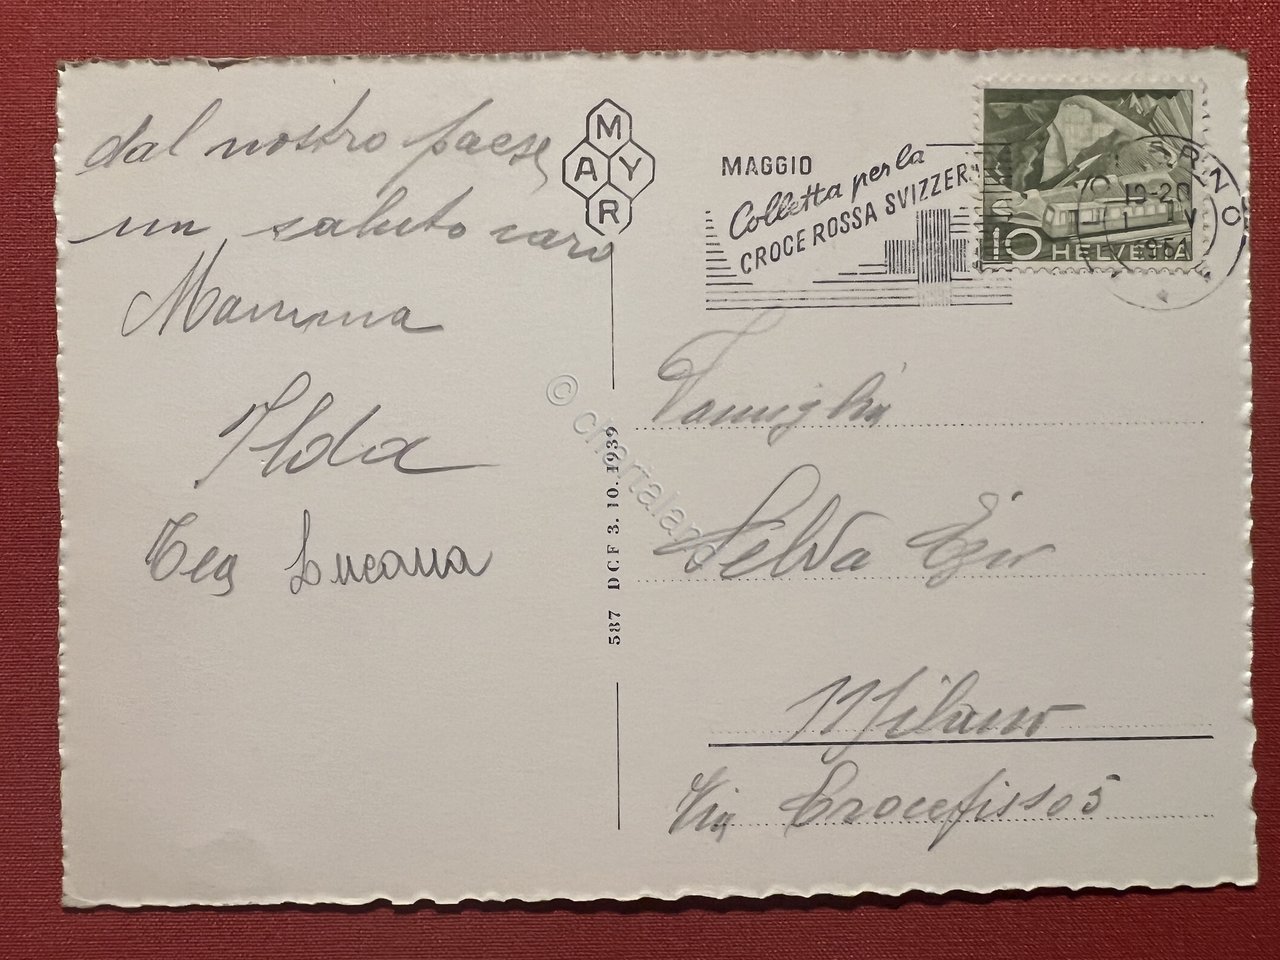 dal nostro paese
un saluto caro
Mamma
Ilda
Luciana
MAYR
587 DCF 3. 10. 1939
© chartaland
MAGGIO
Colletta per la
CROCE ROSSA SVIZZERA
19-20
1951
10 HELVETIA
Famiglia
Selva
Milano
Via Crocefisso 5